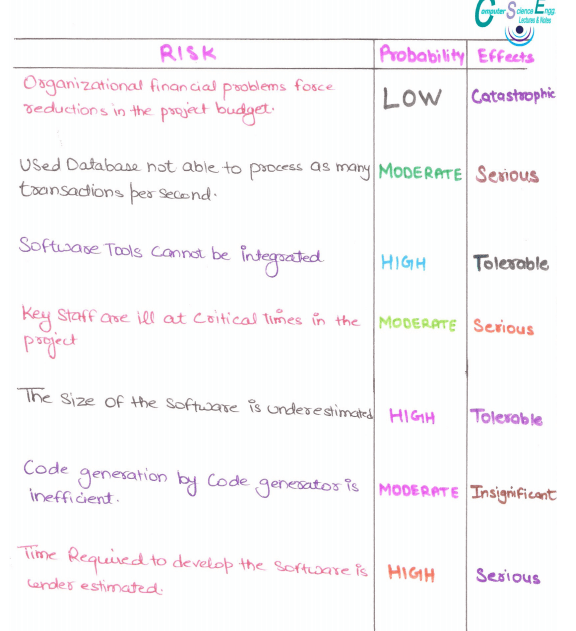 Computer Science Engg
Lectures & Notes
RISK Probability Effects
Organizational financial problems force LOW Catastrophic
reductions in the project budget.
Used Database not able to process as many MODERATE Serious
transactions per second.
Software Tools cannot be integrated HIGH Tolerable
Key Staff are ill at Critical Times in the MODERATE Serious
project
The Size of the Software is underestimated HIGH Tolerable
Code generation by Code generator is MODERATE Insignificant
inefficient.
Time Required to develop the Software is HIGH Serious
under estimated.